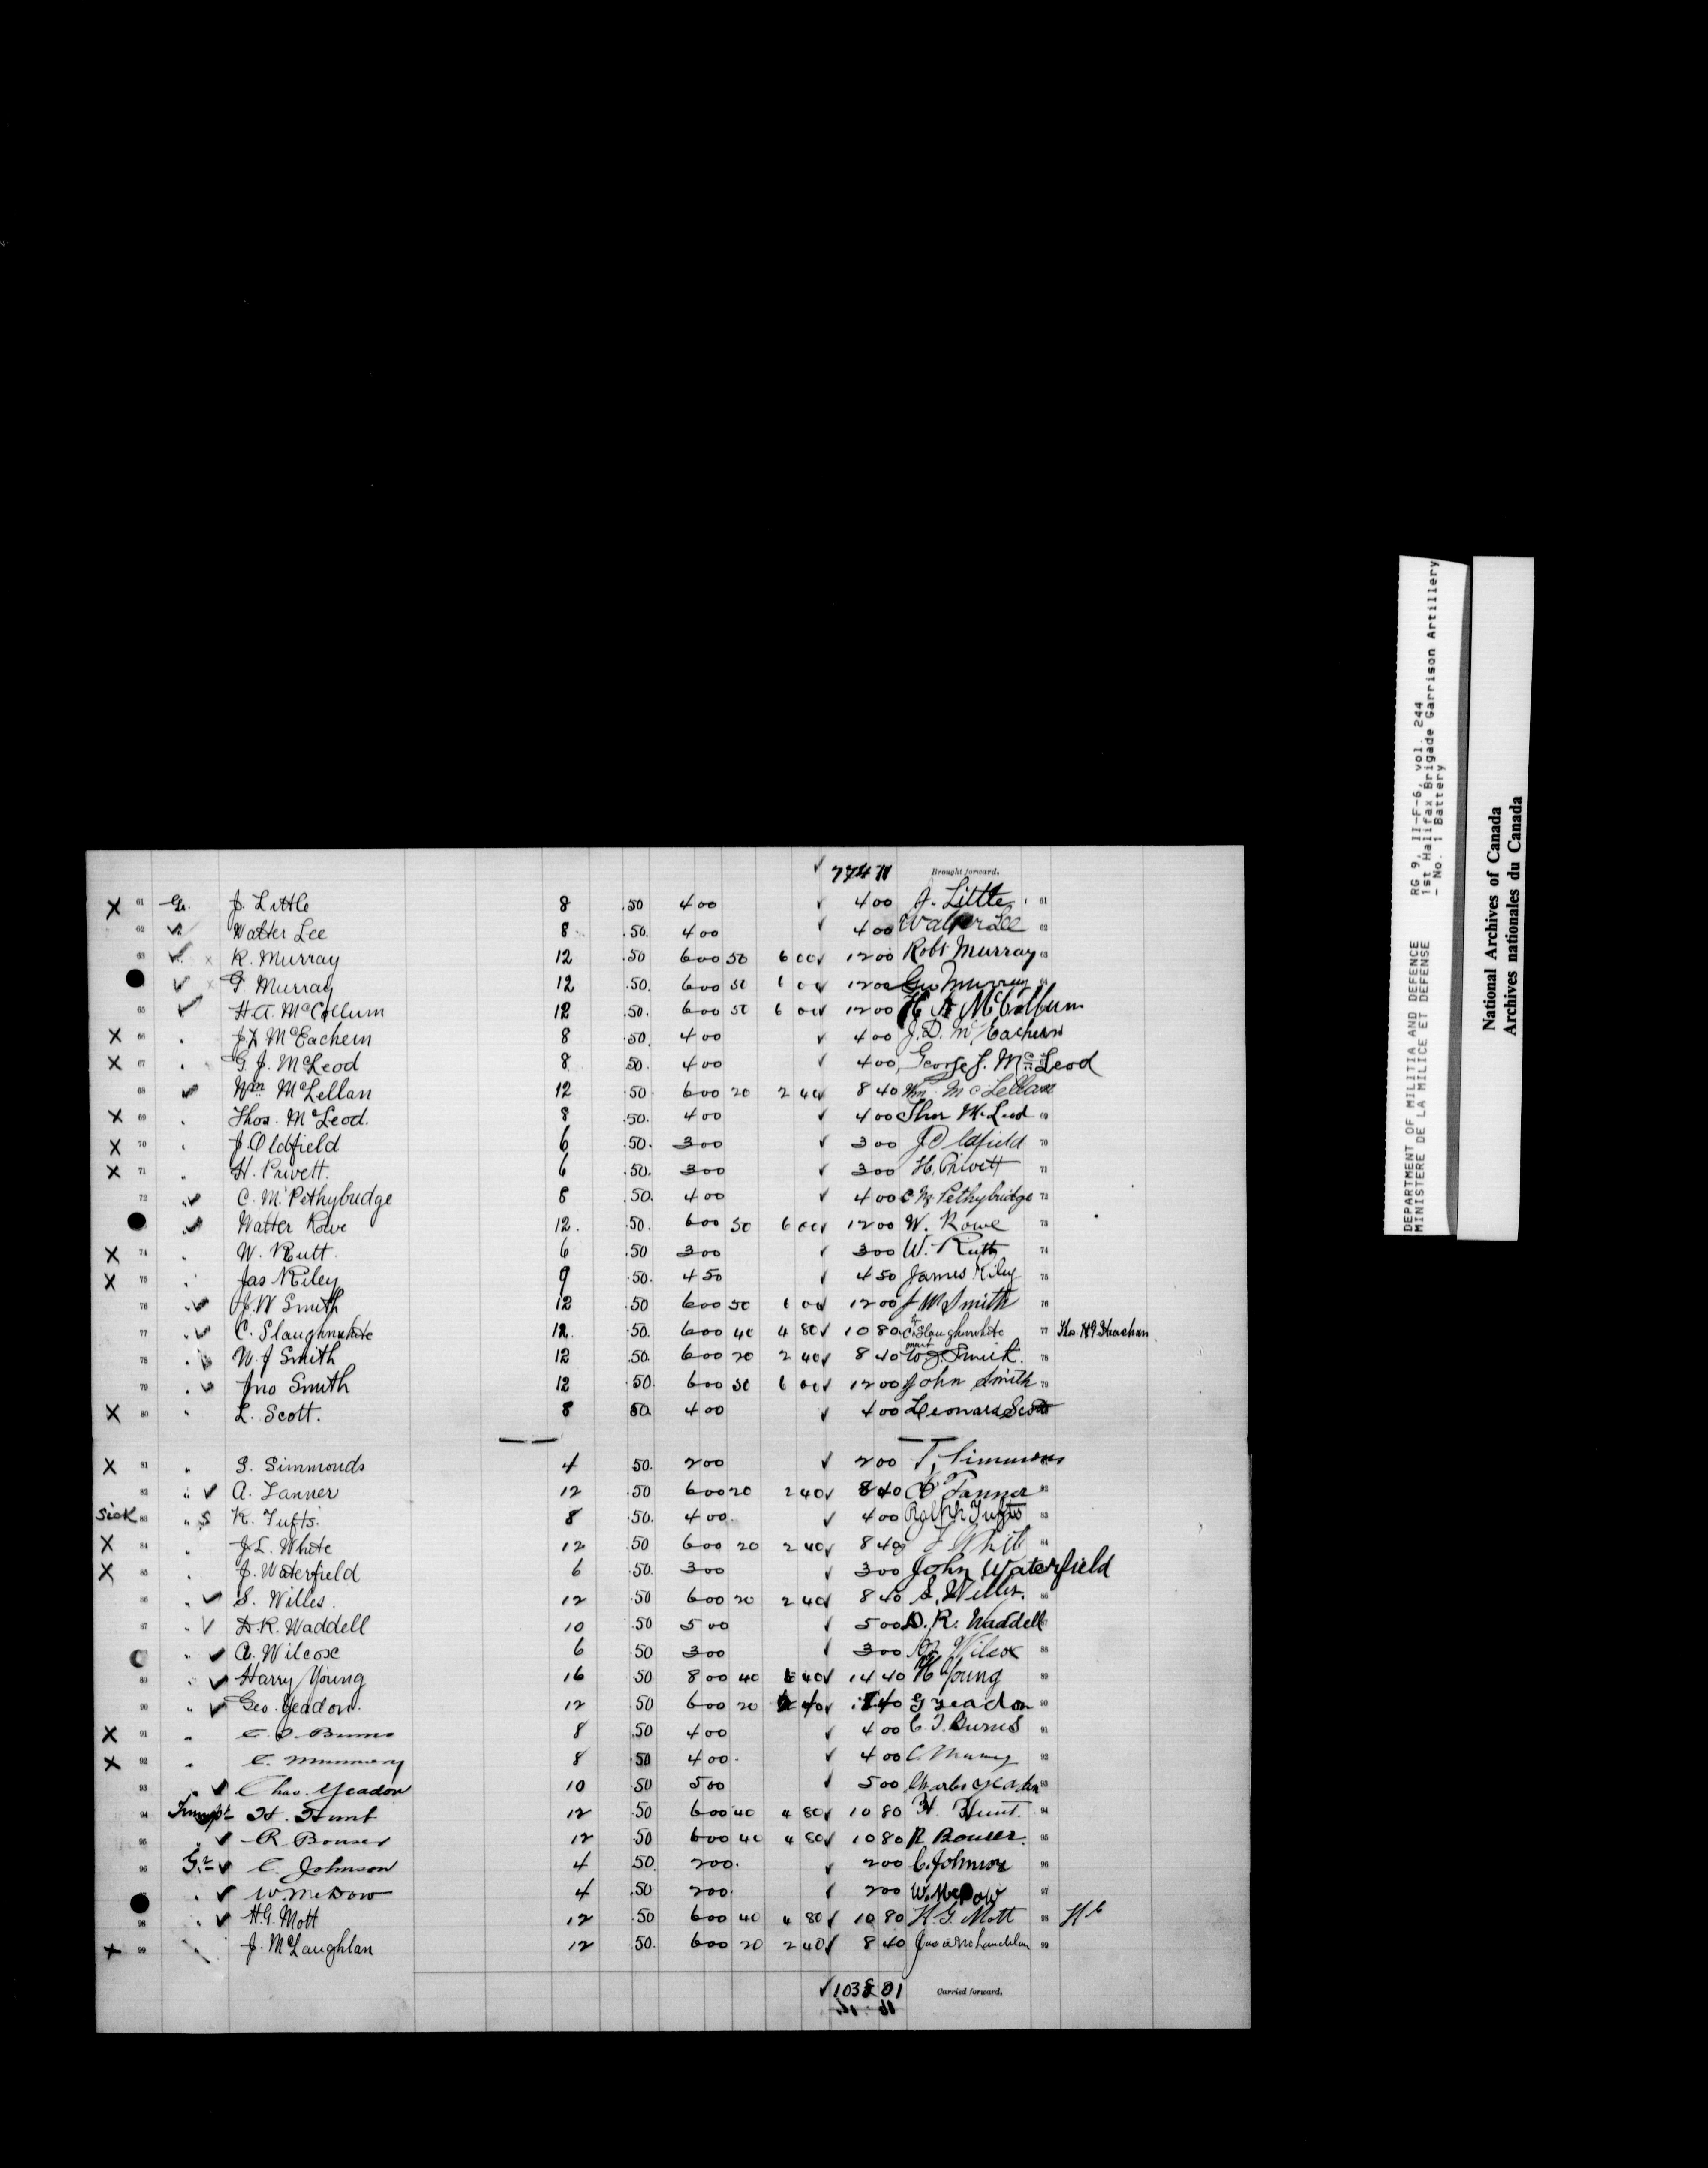 774 71 Brought forward.
X 61 Gr. J. Little 8 .50 4 00 ✓ 4 00 J. Little 61
62 ✓ Walter Lee 8 .50. 4 00 ✓ 4 00 Walter Lee 62
63 ✓ x R. Murray 12 .50 6 00 50 6 00 ✓ 12 00 Robt Murray 63
✓ x G. Murray 12 .50. 6 00 50 6 00 12 00 Geo Murray
65 ✓ H A. McCollum 12 .50. 6 00 50 6 00 ✓ 12 00 H A McCollum
X 66 . McEachern 8 .50. 4 00 ✓ 4 00 J. D. McEachern
X 67 . G. J. McLeod 8 .50. 4 00 ✓ 4 00 George J. McLeod
68 ✓ Wm McLellan 12 .50. 6 00 20 2 40 ✓ 8 40 Wm McLellan
X 69 . Thos. McLeod. 8 .50. 4 00 ✓ 4 00 Thos McLeod 69
X 70 . J. Oldfield 6 .50. 3 00 ✓ 3 00 J Oldfield 70
X 71 . H. Privett. 6 .50. 3 00 ✓ 3 00 H. Privett 71
72 . ✓ C. M. Pethybridge 8 .50. 4 00 ✓ 4 00 C M. Pethybridge 72
. ✓ Walter Rowe 12. .50. 6 00 50 6 00 ✓ 12 00 W. Rowe 73
X 74 . W. Rutt. 6 .50 3 00 ✓ 3 00 W. Rutt 74
X 75 . Jas Riley 9 .50. 4 50 ✓ 4 50 James Riley 75
76 . ✓ J. W Smith 12 .50 6 00 50 6 00 12 00 J W Smith 76
77 . ✓ C. Slaughnwhite 12. .50. 6 00 40 4 80 ✓ 10 80 C. Slaughnwhite 77
78 . ✓ W. J Smith 12 .50. 6 00 20 2 40 ✓ 8 40 W. J. Smith. 78
79 . ✓ Jno Smith 12 .50. 6 00 50 6 00 ✓ 12 00 John Smith 79
X 80 . L. Scott. 8 50. 4 00 ✓ 4 00 Leonard Scott
X 81 . S. Simmonds 4 50. 2 00 ✓ 2 00
82 . ✓ A. Tanner 12 .50 6 00 20 2 40 ✓ 8 40 A Tanner 82
Sick 83 . S R. Tufts. 8 .50. 4 00. ✓ 4 00 Ralph Tufts 83
X 84 . J L. White 12 .50 6 00 20 2 40 ✓ 8 40 J White 84
X 85 . J. Waterfield 6 .50. 3 00 ✓ 3 00 John Waterfield
86 . ✓ S. Willes. 12 .50 6 00 20 2 40 ✓ 8 40 S. Willes. 86
87 . ✓ D. R. Waddell 10 .50 5 00 ✓ 5 00 D. R. Waddell
. ✓ A. Wilcox 6 .50 3 00 ✓ 3 00 Wilcox 88
89 . ✓ Harry Young 16 .50 8 00 40 6 40 ✓ 14 40 H Young 89
90 . ✓ Geo. Yeadon. 12 .50 6 00 20 2 40 ✓ 8 40 G Yeadon 90
X 91 . Burns 8 .50 4 00 ✓ 4 00 Burns 91
X 92 . C. 8 .50 4 00. ✓ 4 00 C. 92
93 . ✓ Chas. Yeadon 10 .50 5 00 ✓ 5 00 Charles Yeadon 93
94 Trumpt. H. Hunt 12 .50 6 00 40 4 80 ✓ 10 80 H. Hunt. 94
95 . ✓ R. Bouser 12 .50 6 00 40 4 80 ✓ 10 80 R. Bouser. 95
96 Gr. ✓ C. Johnson 4 .50. 2 00. ✓ 2 00 C. Johnson 96
. ✓ W. McDow 4 .50 2 00. ✓ 2 00 W. McDow 97
98 . ✓ H. G. Mott 12 .50 6 00 40 4 80 ✓ 10 80 H. G. Mott 98
X 99 J. McLaughlan 12 .50. 6 00 20 2 40 ✓ 8 40 99
✓ 1038 01 Carried forward.
DEPARTMENT OF MILITIA AND DEFENCE RG 9, II-F-6, vol. 244
MINISTERE DE LA MILICE ET DEFENSE 1st Halifax Brigade Garrison Artillery
- No. 1 Battery
National Archives of Canada
Archives nationales du Canada